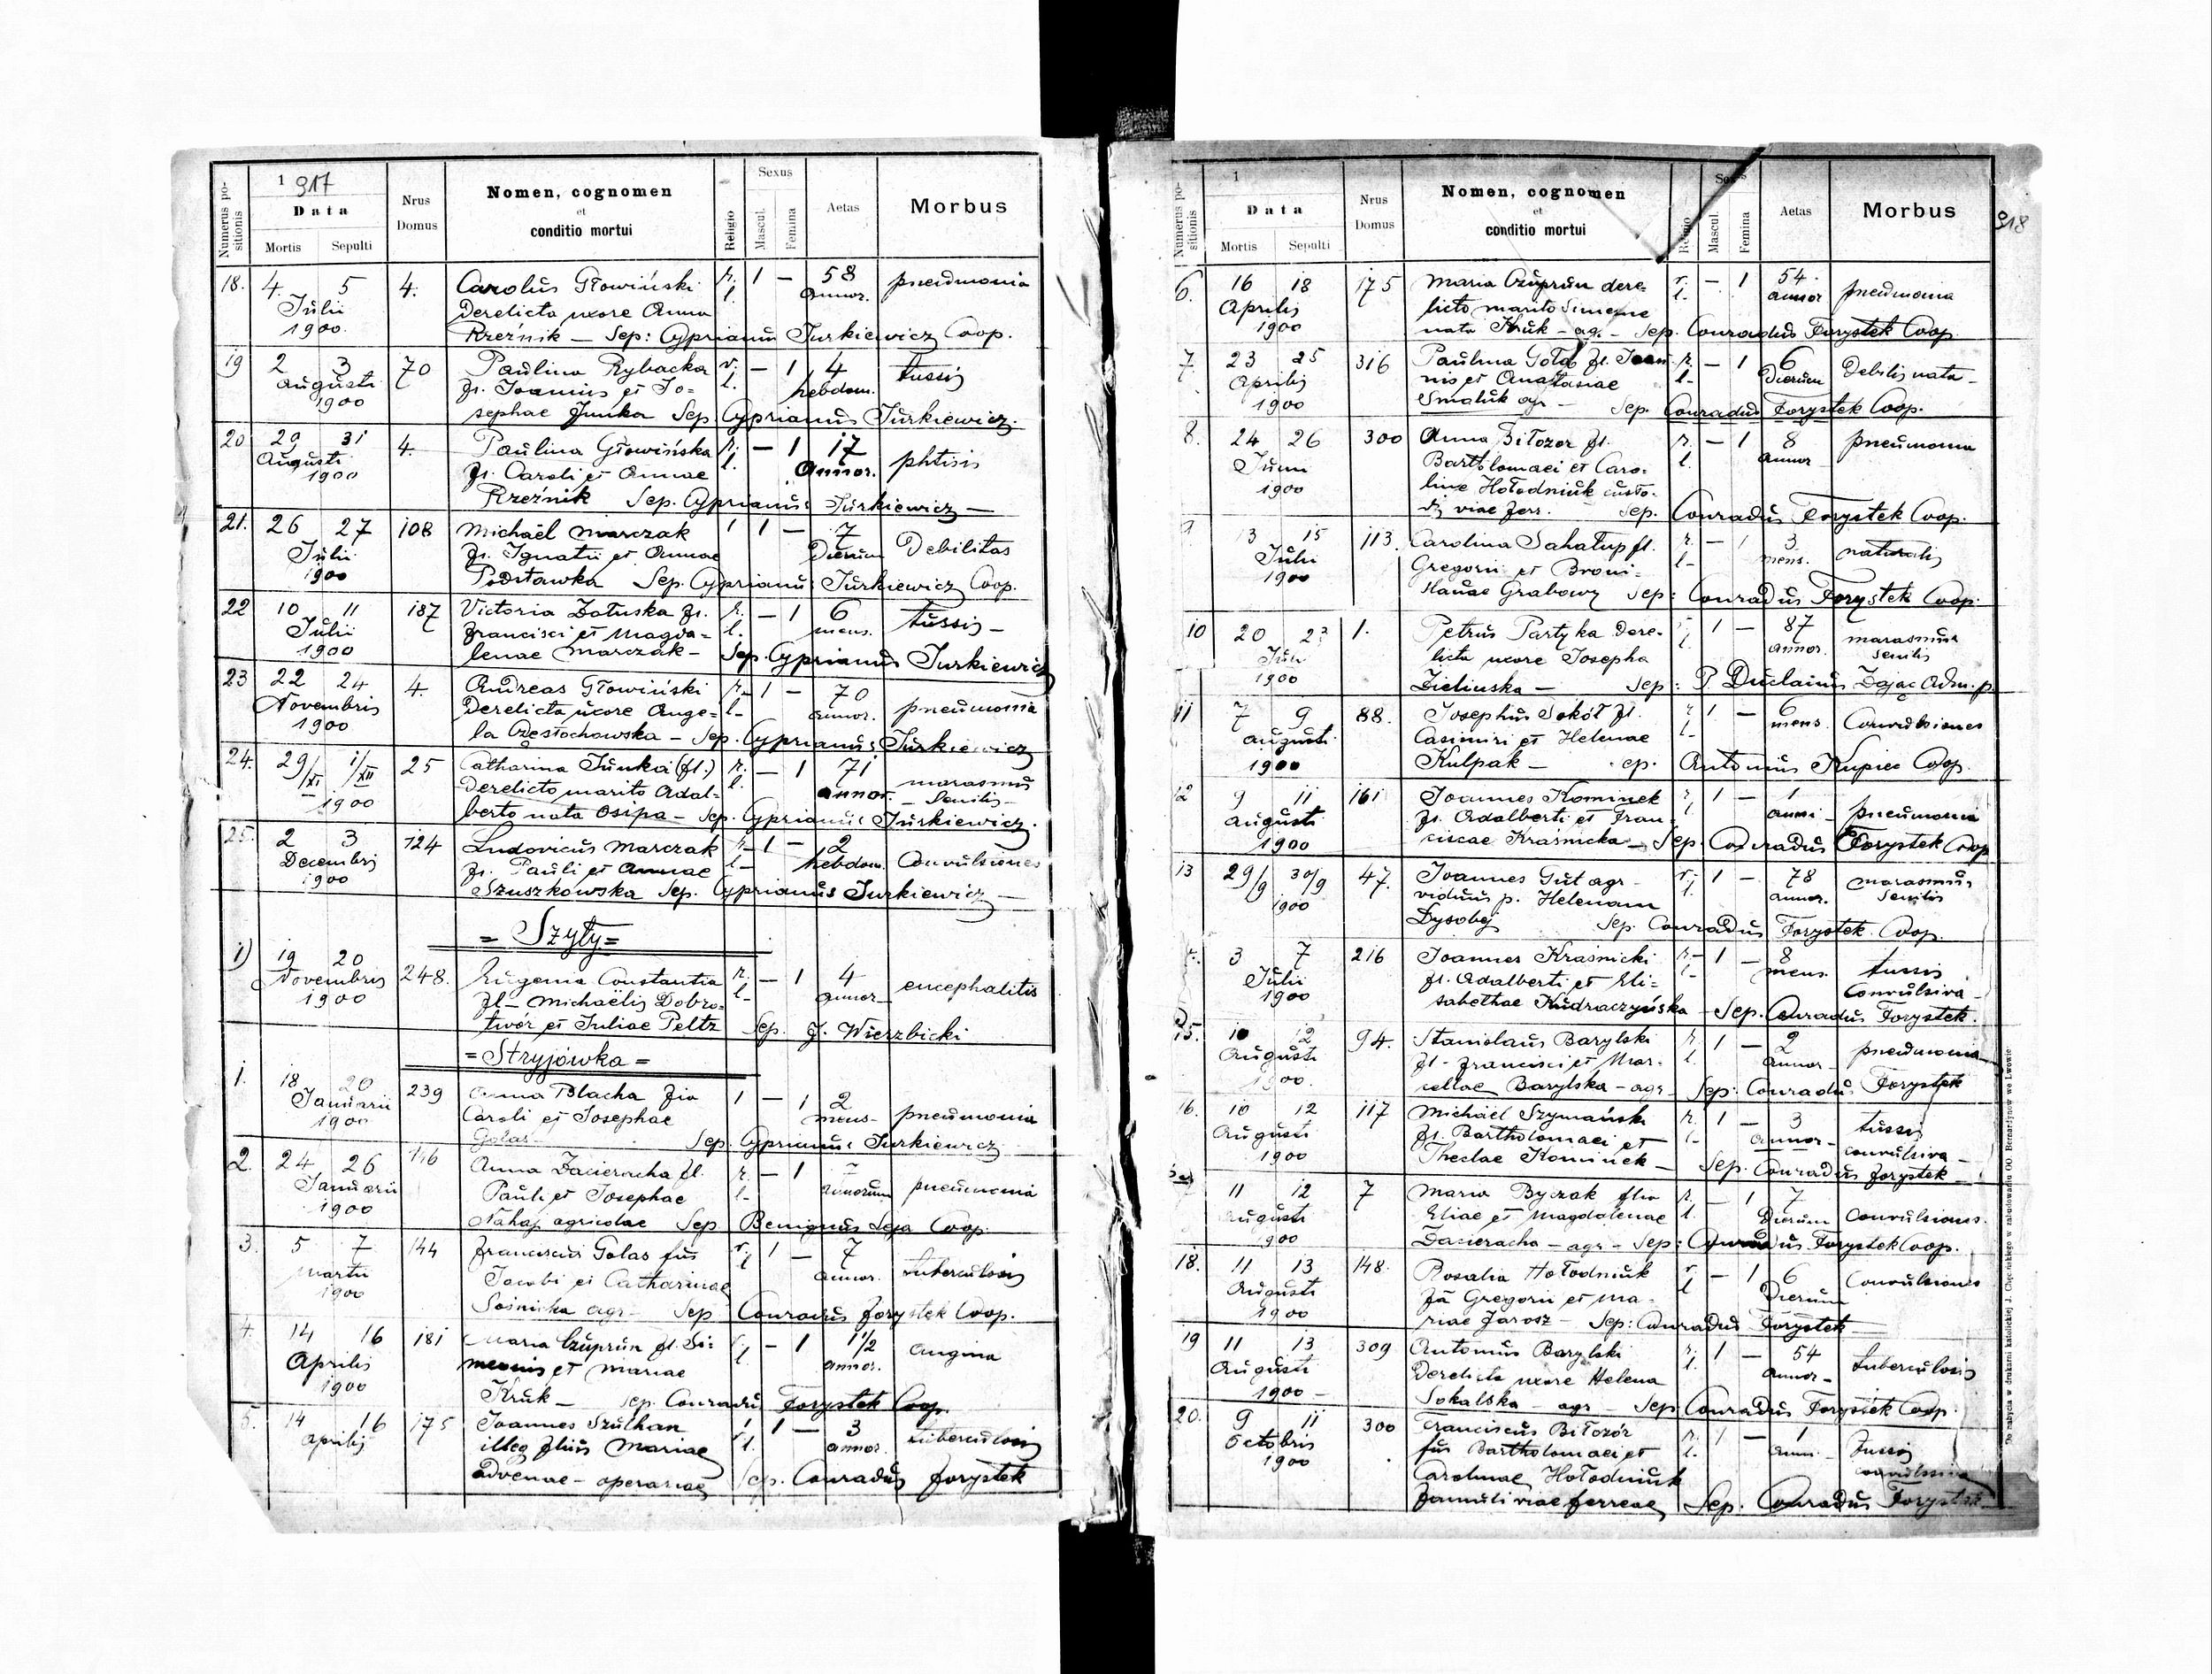 1 917
Numerus positionis
Data
Mortis Sepulti
Nrus Domus
Nomen, cognomen
et
conditio mortui
Religio
Sexus
Mascul. Femina
Aetas
Morbus
18. 4. 5 4. Carolus Głowiński r. 1 — 58 pneumonia
Julii Derelicta uxore Anna l. annor.
1900. Rzeźnik — Sep: Cyprianus Jurkiewicz Coop.
19 2 3 70 Paulina Rybacka r. — 1 4 tussis
Augusti fl. Joannis et Jo- l. hebdom.
1900 sephae Junka Sep Cyprianus Jurkiewicz.
20 29 31 4. Paulina Głowińska r. — 1 17 phtisis
Augusti fl. Caroli et Annae l. Annor.
1900 Rzeźnik Sep. Cyprianus Jurkiewicz —
21. 26 27 108 Michaël Marczak 1 — 7 Debilitas
Julii fl. Ignatii et Annae Dierum
1900 Podstawka Sep. Cyprianus Jurkiewicz Coop.
22 10 11 187 Victoria Załuska fl. r. — 1 6 tussis —
Julii Francisci et Magda= l. mens.
1900 lenae Marczak — Sep. Cyprianus Jurkiewicz
23 22 24 4. Andreas Głowiński r. 1 — 70 pneumonia
Novembris Derelicta uxore Ange= l. annor.
1900 la Częstochowska — Sep. Cyprianus Jurkiewicz
24. 29/XI 1/XII 25 Catharina Junka (fl.) r. — 1 71 marasmus
Derelicto marito Adal= l. annor. senilis —
1900 berto nata Osipa — Sep. Cyprianus Jurkiewicz.
25. 2 3 124 Ludovicus Marczak r. 1 — 2 Convulsiones
Decembris fl. Pauli et Annae l. hebdom.
1900 Szuszkowska Sep. Cyprianus Jurkiewicz —
= Szyły =
1) 19 20 248. Eugenia Constantia r. — 1 4 encephalitis
Novembris fl — Michaëlis Dobro= l. annor —
1900 twór et Juliae Peltz Sep. J. Wierzbicki
= Stryjówka =
1. 18 20 239 Anna Blacha fia 1 — 1 2 pneumonia
Januarii Caroli et Josephae mens.
1900 Golas — Sep. Cyprianus Jurkiewicz
2. 24 26 146 Anna Zacieracha fl. r. — 1 pneumonia
Januarii Pauli et Josephae l. annorum
1900 Nahaj agricolae Sep Benignus Seja Coop.
3. 5 7 144 Franciscus Golas fus r. 1 — 7 tuberculosis
Martii Jacobi et Catharinae l annor.
1900 Sośnicka agr — Sep Conradus Forystek Coop.
4. 14 16 181 Maria Czuprun fl. Si= r. — 1 1 1/2 angina
Aprilis meonis et Mariae l. annor.
1900 Kruk — Sep. Conradus Forystek Coop.
5. 14 16 175 Joannes Szulhan r. 1 — 3 tuberculosis
Aprilis illeg. filius Mariae l. annor.
advenae — operariae Sep. Conradus Forystek
1
Numerus positionis
Data
Mortis Sepulti
Nrus Domus
Nomen, cognomen
et
conditio mortui
Religio
Sexus
Mascul. Femina
Aetas
Morbus
918
6. 16 18 175 Maria Czuprun dere= r. — 1 54. pneumonia
Aprilis licto marito Simeone l. annor
1900 nata Kruk — ag. — Sep. Conradus Forystek Coop.
7. 23 25 316 Paulina Gołąb fl. Joan r. — 1 6 Debilis nata —
Aprilis nis et Anastasiae l. Dierum
1900 Smaluk agr — Sep. Conradus Forystek Coop.
8. 24 26 300 Anna Biłozor fl. r. — 1 8 pneumonia
Junii Bartholomaei et Caro- l. annor
1900 linae Hołodniuk custo-
dis viae ferr. Sep. Conradus Forystek Coop.
13 15 113. Carolina Sahałup fl. r. — 1 3 naturalis
Julii Gregorii et Broni= l. mens.
1900 slauae Grabowy Sep: Conradus Forystek Coop.
10 20 1. Petrus Partyka Dere- 1 — 87 marasmus
licta uxore Josepha annor. senilis
1900 Zielinska — Sep: P. Duclanus Zając Adm. p.
11 7 9 88. Josephus Sokół fl. r. 1 — 6 Convulsiones
Augusti Casimiri et Helenae l. mens.
1900 Kulpak — ep. Antonius Kupiec Coop.
12 9 11 161 Joannes Kominek r. 1 — 1 pneumonia
Augusti fl. Adalberti et Fran anni —
1900 ciscae Kraśnicka — Sep. Conradus Forystek Coop
13 29/9 30/9 47. Joannes Gut agr — r. 1 — 78 marasmus
1900 viduus p. Helenam annor. senilis
Dysobej Sep. Conradus Forystek Coop.
3 7 216 Joannes Kraśnicki r. 1 — 8 tussis
Julii fl. Adalberti et Eli= l. mens. Convulsiva —
1900 sabethae Kudraczyńska — Sep. Conradus Forystek.
15. 10 12 94. Stanislaus Barylski r. 1 — 2 pneumonia
Augusti fl — Francisci et Mar- l. annor —
1900. cellae Barylska — agr — Sep: Conradus Forystek
16. 10 12 117 Michaël Szymański r. 1 — 3 tussis
Augusti fl. Bartholomaei et l. annor — convulsiva —
1900 Theclae Kominek — Sep. Conradus Forystek —
11 12 7 Maria Byczak filia r. — 1 7 Convulsiones.
Augusti Eliae et Magdalenae l. Dierum
1900 Zacieracha — agr — Sep: Conradus Forystek Coop.
18. 11 13 148. Rosalia Hołodniuk r. — 1 6 Convulsiones
Augusti fa Gregorii et Ma- l Dierum
1900 riae Jarosz — Sep: Conradus Forystek —
19 11 13 309 Antonius Barylski r. 1 — 54 tuberculosis
Augusti Derelicta uxore Helena l. annor —
1900 — Sokalska — agr — Sep Conradus Forystek Coop.
20. 9 11 300 Franciscus Biłozór r. 1 — 1 Tussis
Octobris fus Bartholomaei et l. anni — convulsiva
1900 Carolinae Hołodniuk
famuli viae ferreae Sep. Conradus Forystek
Do nabycia w drukarni katolickiej J. Chęcińskiego w zabudowaniu OO. Bernardynów we Lwowie